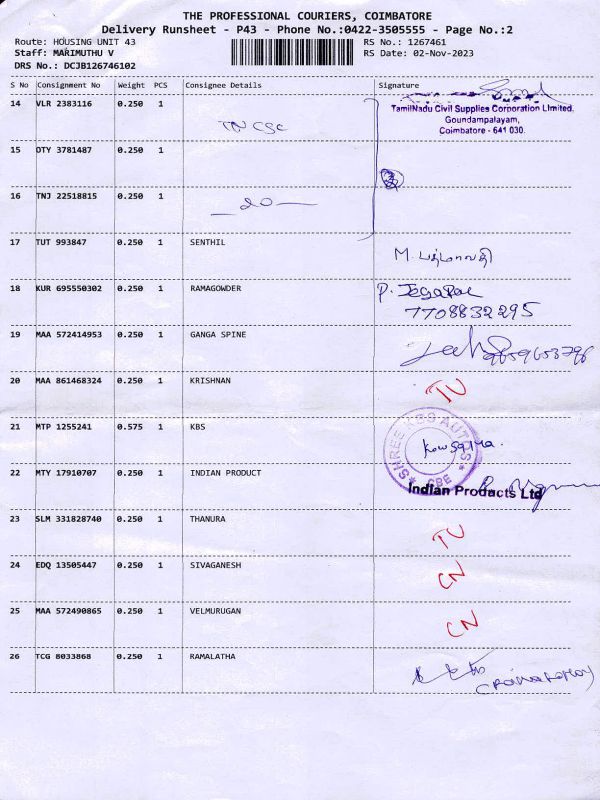 THE PROFESSIONAL COURIERS, COIMBATORE
Delivery Runsheet - P43 - Phone No.:0422-3505555 - Page No.:2
Route: HOUSING UNIT 43 RS No.: 1267461
Staff: MARIMUTHU V RS Date: 02-Nov-2023
DRS No.: DCJB126746102
S No Consignment No Weight PCS Consignee Details Signature
14 VLR 2383116 0.250 1 TNCSC
TamilNadu Civil Supplies Corporation Limited.
Goundampalayam,
Coimbatore - 641 030.
15 OTY 3781487 0.250 1
16 TNJ 22518815 0.250 1
17 TUT 993847 0.250 1 SENTHIL M. பத்மாவதி
18 KUR 695550302 0.250 1 RAMAGOWDER P. Jegapal
7708832295
19 MAA 572414953 0.250 1 GANGA SPINE
20 MAA 861468324 0.250 1 KRISHNAN TU
21 MTP 1255241 0.575 1 KBS SHREE KBS AUTOS CBE Kowsalya.
22 MTY 17910707 0.250 1 INDIAN PRODUCT Indian Products Ltd
23 SLM 331828740 0.250 1 THANURA TU
24 EDQ 13505447 0.250 1 SIVAGANESH CN
25 MAA 572490865 0.250 1 VELMURUGAN CN
26 TCG 8033868 0.250 1 RAMALATHA